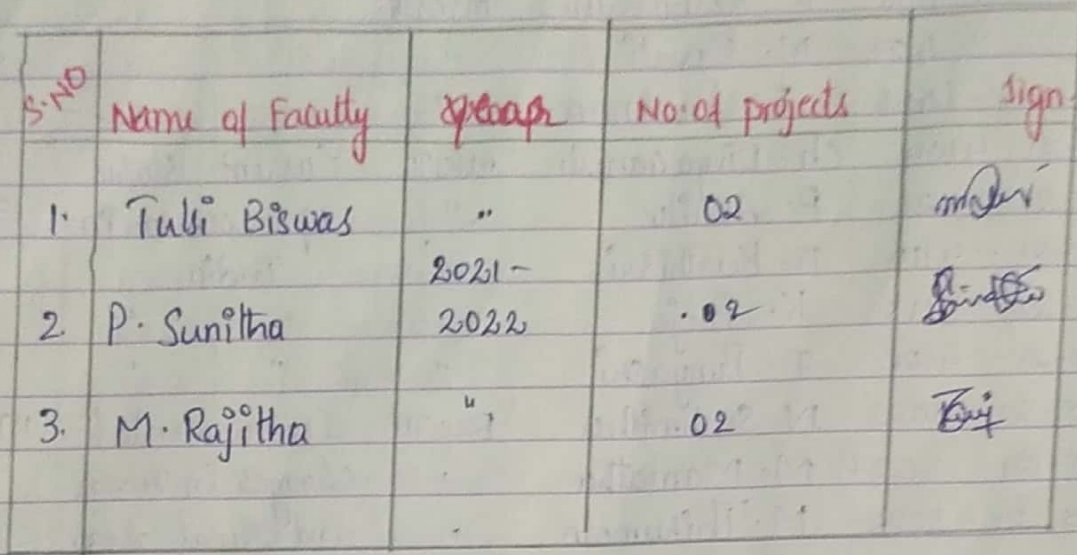 S.NO Name of Faculty year No. of projects Sign
1. Tulsi Biswas " 02
2021-
2. P. Sunitha 2022 .02
3. M. Rajitha " 02